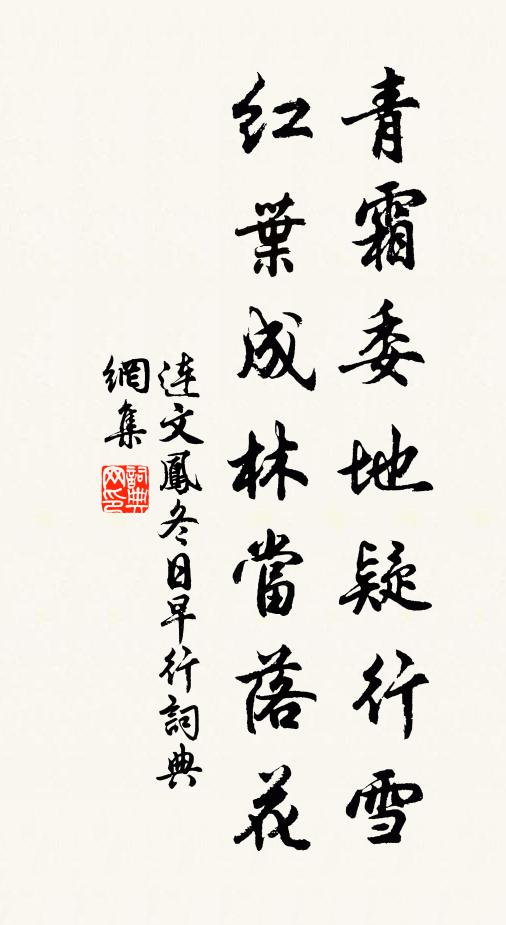 青霜委地疑行雪
紅葉成林當落花
連文鳳冬日早行詞典
網集
詞典
网印